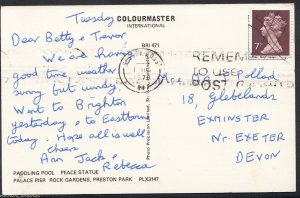 Tuesday
COLOURMASTER
INTERNATIONAL
BRI 471
Dear Betty & Trevor
We are having
good time, weather
sunny but windy.
Went to Brighton
yesterday & to Eastbourne
today. Hope all is well
cheers
Ann Jack &
Rebecca
PADDLING POOL PEACE STATUE
PALACE PIER ROCK GARDENS, PRESTON PARK PLX3147
Photo Precision Limited, St.
7
REMEMBER
TO USE
POST
Pollard
18, Glebelands
EXMINSTER
Nr. EXETER
DEVON